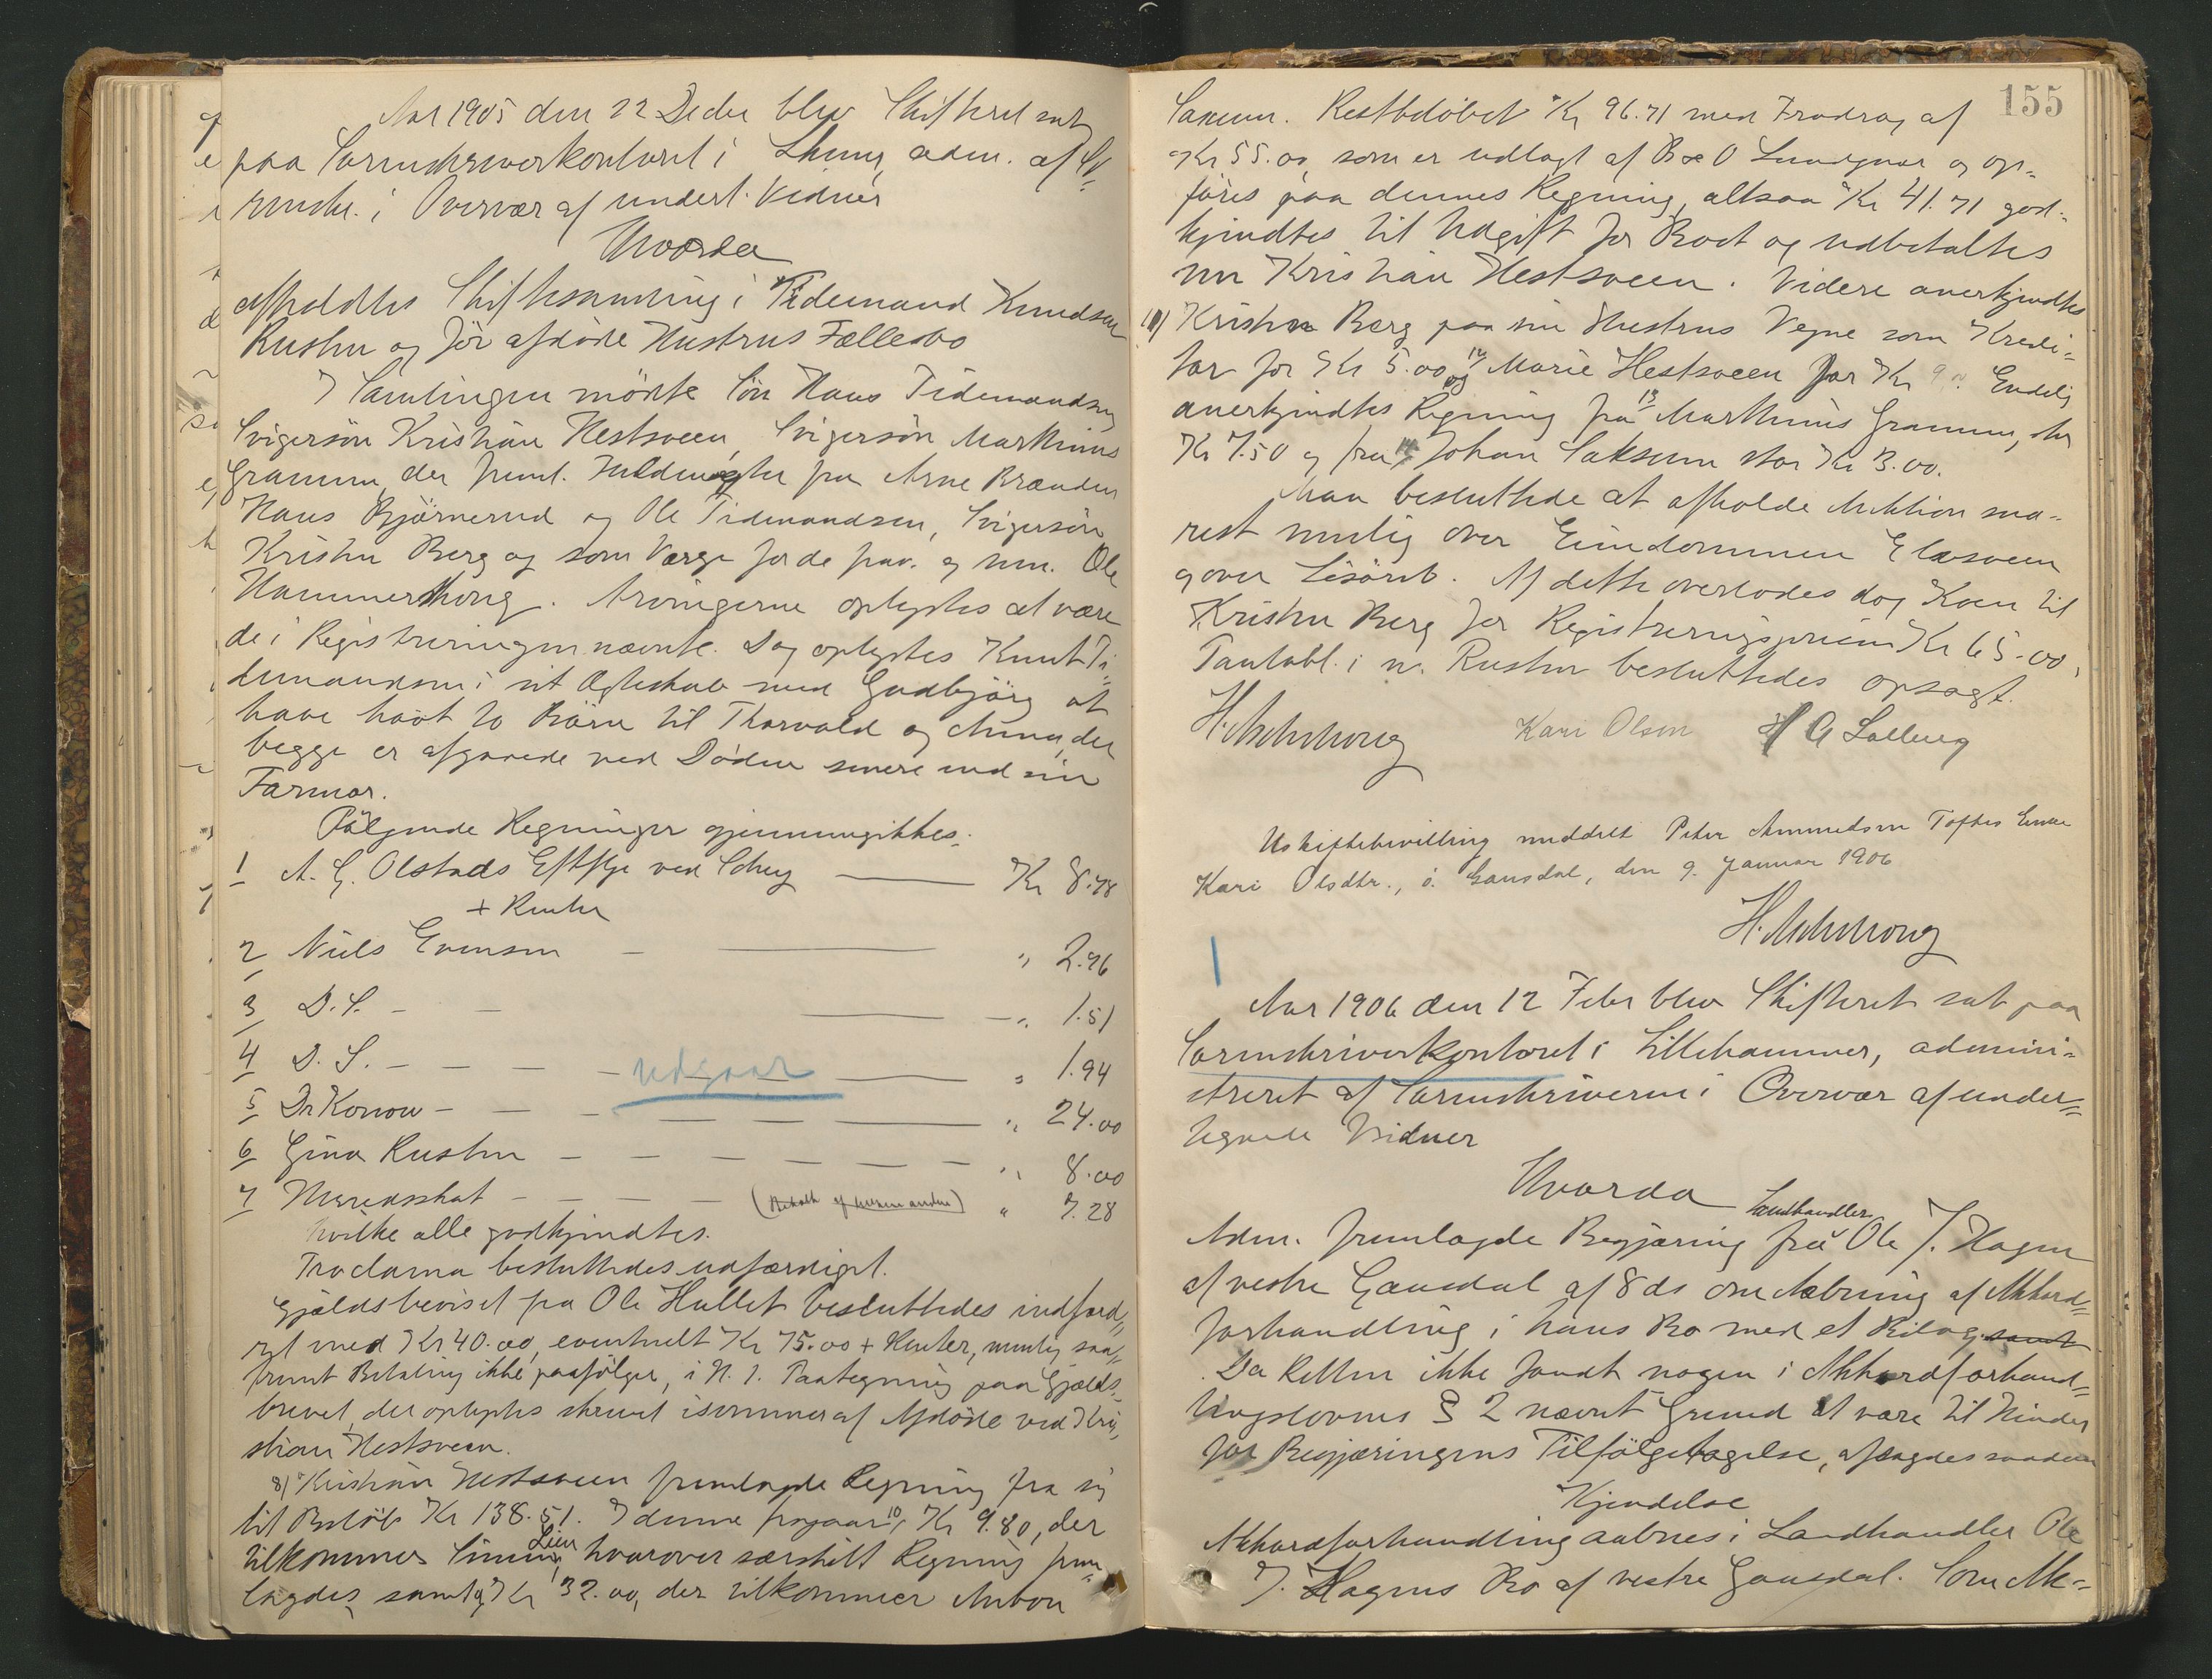 Aar 1905 den 22 Decbr blev Skifteret sat
paa Sorenskriverkontoret i Lhmr, adm. af So-
renskr. i Overvær af undert. Vidner
Hvorda
afholdtes Skiftesamling i Tidemand Knudsen
Rusten og før afdøde Hustrus Fællesbo
I Samlingen mødte Søn Hans Tidemandsen
Svigersøn Kristian Hestsveen, Svigersøn Marthinus
Gramm, der freml. Fuldmagter fra Arne Brænden
Hans Bjørnerud og Ole Tidemandsen, Svigersøn
Kristen Berg og som Værge for de frav. og um. Ole
Hammershong. Arvingerne oplystes at være
de i Registreringen nævnte. Dog oplystes Knut Ti-
demandsen i sit Ægteskab med Gudbjørg at
have havt to Børn til Thorvald og Anna, der
begge er afgaaede ved Døden senere end sin
Farmor.
Følgende Regninger gjennemgikkes:
1 A. G. Olstads Eftflge ved Schey Kr 8.78
+ Renter
2 Niels Evensen " 2.76
3 D. S. " 1.51
4 D. S. " 1.94
udgaar
5 Dr Konow " 24.00
6 Gina Rusten " 8.00
7 Herredsskat (Betalt af ) " 7.28
hvilke alle godkjendtes.
Proclama besluttedes udfærdiget.
Gjældsbeviset fra Ole Hullet besluttedes indford-
ret med Kr 40.00, eventuelt Kr 75.00 + Renter, nemlig saa-
fremt Betaling ikke paafølger, i H. t. Paategning paa Gjælds-
brevet, der oplystes skrevet isommer af Afdøde ved Kri-
stian Hestsveen.
8/ Kristian Hestsveen fremlagde Regning fra sig
til Beløb Kr 138.51. I denne fragaar 10/ Kr 9.80, der
tilkommer Simen Lien, hvorover særskilt Regning frem-
lagdes, samt 9/ Kr 32.00, der tilkommer Anton
155
Saxum. Restbeløbet Kr 96.71 med Fradrag af
Kr 55.00, som er udlagt af B. O Lundgaar og op-
føres paa dennes Regning, altsaa Kr 41.71 god-
kjendtes til Udgift for Boet og udbetaltes
nu Kristian Hestsveen. Videre anerkjendtes
11/ Kristen Berg paa sin Hustrus Vegne som Kredi-
tor for Kr 5.00 og 12/ Marie Hestsveen for Kr 9. Endelig
anerkjendtes Regning fra 13/ Marthinus Gramm, stor
Kr 7.50 og fra 14/ Johan Saksum stor Kr 3.00.
Man besluttede at afholde Auktion sna-
rest mulig over Eiendommen Elvesveen
og over Løsøret. Af dette overlodes dog Koen til
Kristen Berg for Registreringsprisen Kr 65.00.
Pantobl. i n. Rusten besluttedes opsagt.
H. Aschehoug Kari Olsen H O Solberg
Uskiftebevilling meddelt Peter Ammundsen Toftes Enke
Kari Olsdtr., ö. Gausdal, den 9. Januar 1906
H. Aschehoug
Aar 1906 den 12 Febr blev Skifteret sat paa
Sorenskriverkontoret i Lillehammer, admini-
streret af Sorenskriveren i Overvær af under-
tegnede Vidner
Hvorda
Adm. fremlagde Begjæring fra Landhandler Ole J. Hagen
af vestre Gausdal af 8 ds om Aabning af Akkord-
forhandling i hans Bo med et Bilag samt
Da Retten ikke fandt nogen i Akkordforhand-
lingslovens § 2 nævnt Grund at være til Hinder
for Begjæringens Tilfølgetagelse, afsagdes saadan
Kjendelse
Akkordforhandling aabnes i Landhandler Ole
J. Hagens Bo af vestre Gausdal. Som Ak-